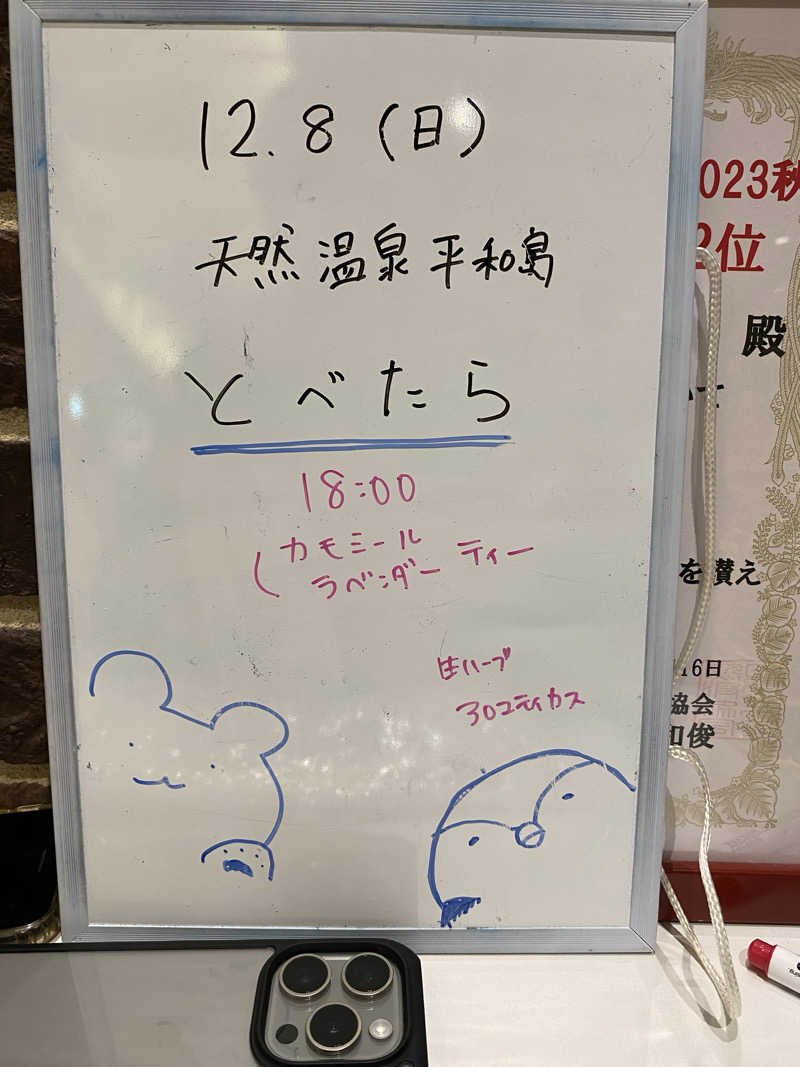 12.8(日)
天然温泉平和島
とべたら
18:00
(カモミール
ラベンダー ティー
生ハーブ
023秋
2位
殿
を讃え
16日
協会
和俊